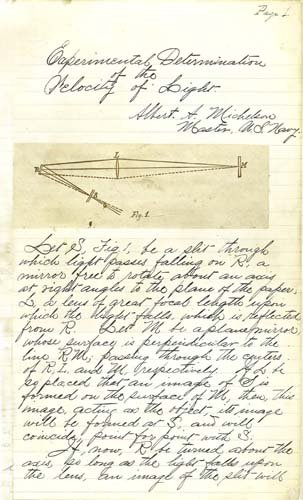 Page 1.
Experimental Determination
of the
Velocity of Light.
Albert. A. Michelson
Master, U.S. Navy.
L
R
M
S
Fig. 1.
Let S, Fig 1, be a slit through
which light passes falling on R, a
mirror free to rotate about an axis
at right angles to the plane of the paper;
L, a lens of great focal length upon
which the light falls, which is reflected
from R. Let M be a plane mirror,
whose surface is perpendicular to the
line R,M; passing through the centers
of R, L, and M, respectively. If L be
so placed that an image of S is
formed on the surface of M, then, this
image, acting as the object, its image
will be formed at S, and will
coincide, point for point with S.
If, now, R be turned about the
axis, so long as the light falls upon
the lens, an image of the slit will